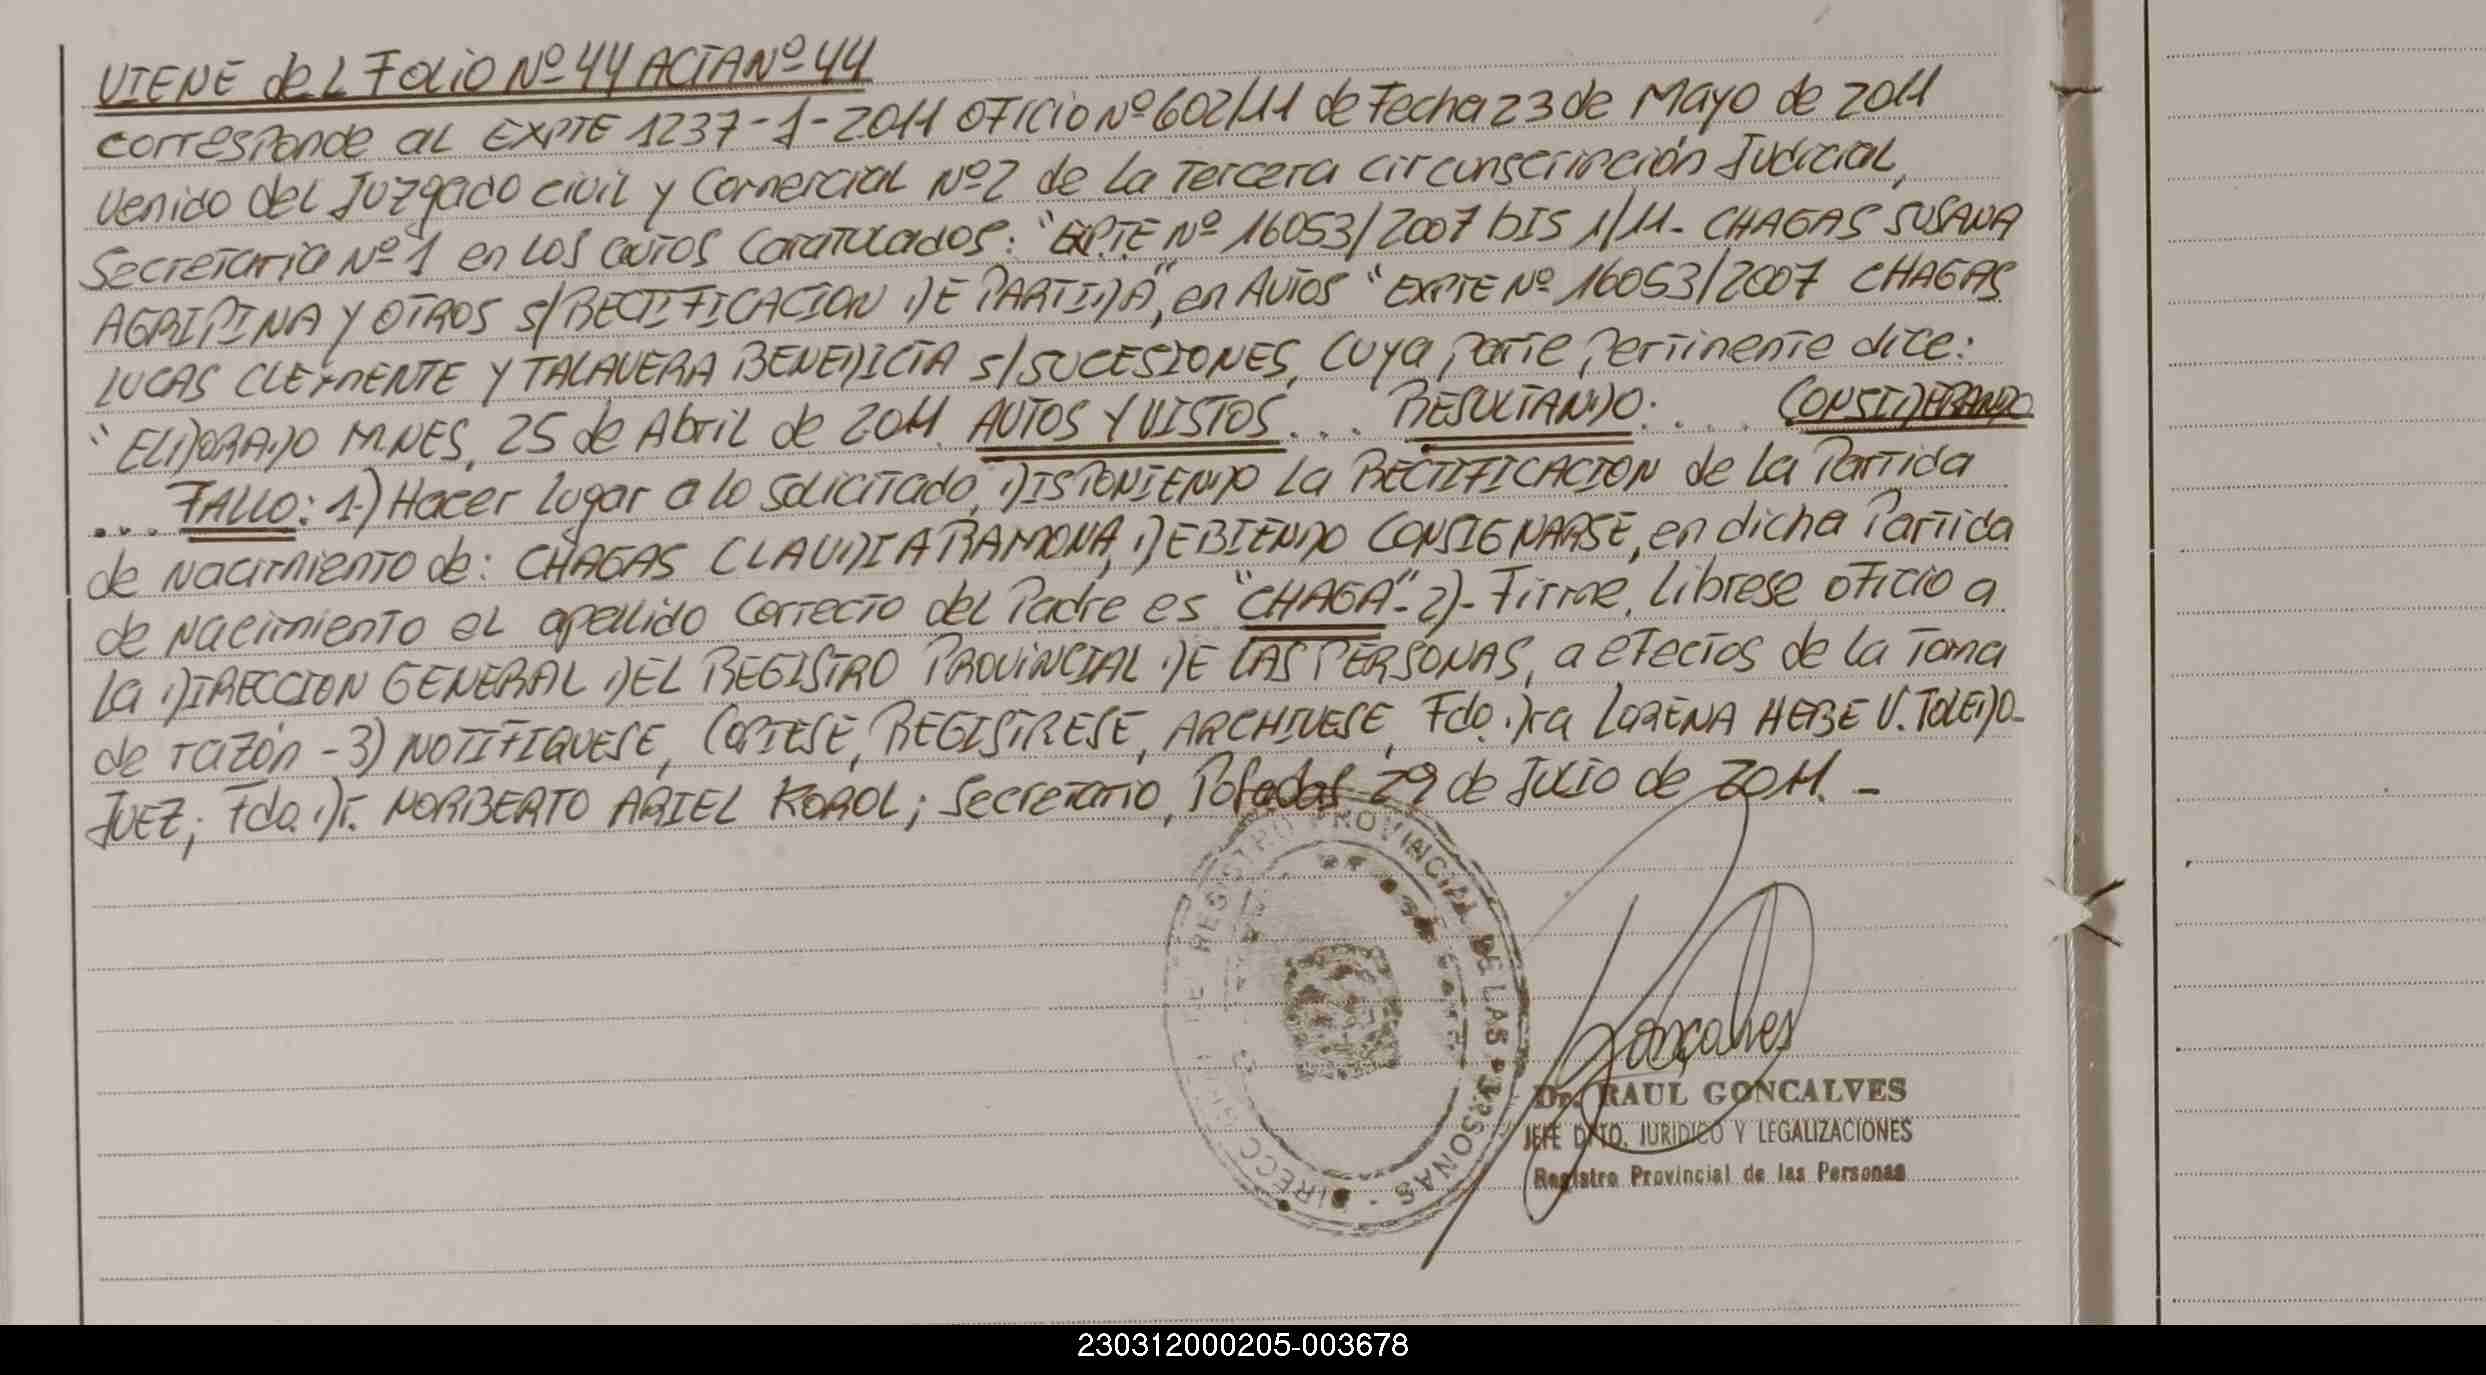 VIENE del Folio Nº 44 ACTA Nº 44
corresponde al EXPTE 1237-J-2011 OFICIO Nº 602/11 de Fecha 23 de Mayo de 2011
venido del Juzgado civil y Comercial Nº 2 de la Tercera circunscripción Judicial,
Secretaria Nº 1 en los autos caratulados: "EXPTE Nº 16053/2007 bis 1/11- CHAGAS SUSANA
AGRIPINA Y OTROS S/RECTIFICACION DE PARTIDA", en Autos "EXPTE Nº 16053/2007 CHAGAS
LUCAS CLEMENTE Y TALAVERA BENEDICTA S/SUCESIONES, cuya parte pertinente dice:
"ELDORADO M.NES, 25 de Abril de 2011. AUTOS Y VISTOS... RESULTANDO:.... CONSIDERANDO
... FALLO: 1.) Hacer lugar a lo solicitado, DISPONIENDO la RECTIFICACION de la Partida
de Nacimiento de: CHAGAS CLAUDIA RAMONA, DEBIENDO CONSIGNARSE, en dicha Partida
de Nacimiento el apellido correcto del Padre es "CHAGA"- 2)- Firme, librese oficio a
la DIRECCION GENERAL DEL REGISTRO PROVINCIAL DE LAS PERSONAS, a efectos de la Toma
de razón - 3) NOTIFIQUESE, COPIESE, REGISTRESE, ARCHIVESE, Fdo. Dra LORENA HEBE V. TOLEDO-
JUEZ; Fdo. Dr. NORBERTO ARIEL KOROL; Secretario, Posadas 29 de Julio de 2011. -
REGISTRO PROVINCIAL DE LAS PERSONAS -
Goncalves
Dr. RAUL GONCALVES
JEFE DPTO. JURIDICO Y LEGALIZACIONES
Registro Provincial de las Personas
230312000205-003678